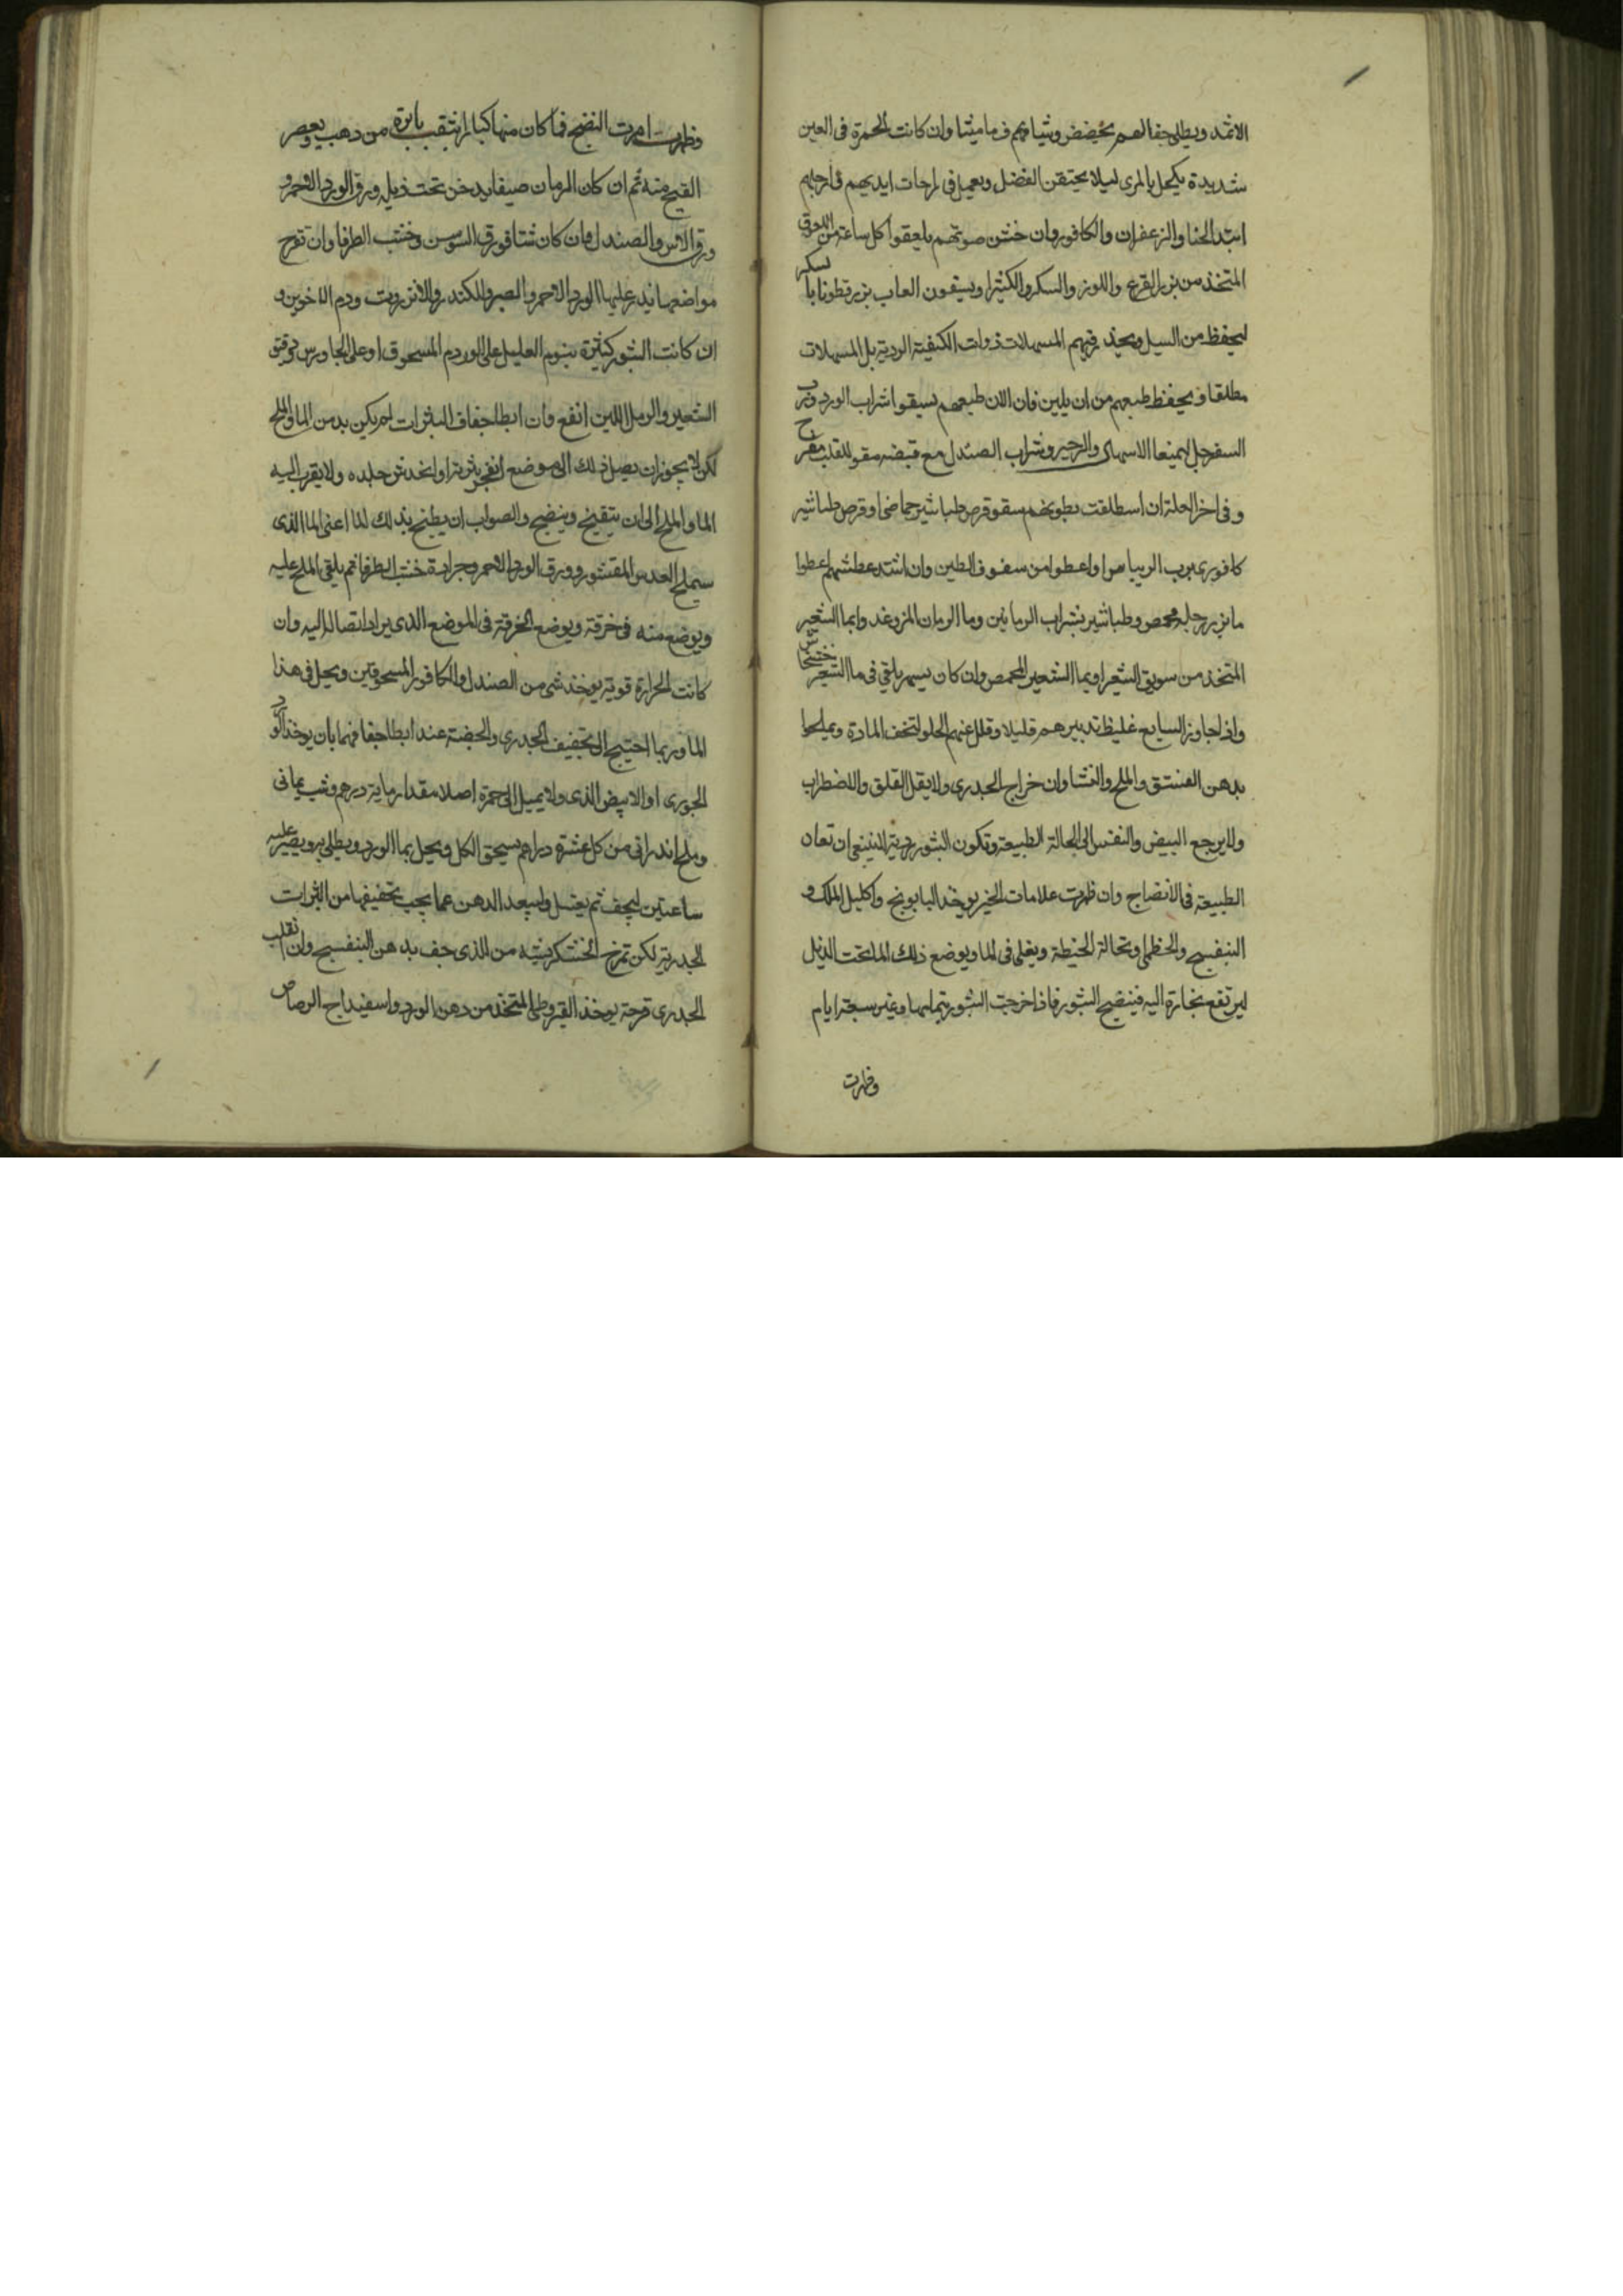 الاثمد ويطلى جفا لهم بحضض وشياف ماميثا وان كانت الحمرة فى العين
شديدة يكحل بالمرى ليلا يحتقن الفضل ويعمل فى راحات ايديهم وارجلهم
ابتدا الحنا والزعفران والكافور وان خشن صوتهم يلعقوا كل ساعة من اللعوق
المتخذ من بزر القرع واللوز والسكر والكثيرا ويسقون لعاب بزرقطونا با لسكر
ليحفظ من السيل ويحذر فيهم المسهلات ذوات الكيفية الردية بل المسهلات
مطلقا ويحفظ طبعهم من ان يلين فان لان طبعهم يسقوا شراب الورد ورب
السفرجل ليمنعا الاسهال والزحير وشراب الصندل مع قبضه مقو للقلب مفرح
وفى اخر العلة ان استطلقت بطونهم سقو قرص طباشير حماضى او قرص طباشير
كافورى برب الريباس واعطوا من سفوف الطين وان اشتد عطشهم اعطوا
ما بزر رجله محمص وطباشير بشراب الرمانين وما الرمان المز وغذ وابما الشعير
المتخذ من سويق الشعير او بما الشعير المحمص وان كان يسهر يلقى فى ما الشعير خشخاش
واذا جاوز السابع غليظ تدبيرهم قليلا وقلل عنهم الحلو لتخف المادة ويملحوا
بدهن الفستق والملح والنشا وان خراج الجدرى ولا يقل القلق والاضطراب
ولا يرجع البيض والنفس الى الحالة الطبيعة وتكون البثور ردية لا ينبغى ان تعان
الطبيعة فى الانضاج وان ظهرت علامات الخير يوخذ البابونج واكليل الملك و
البنفسج والخطمى ونخالة الحنطة ويغلى فى الما ويوضع ذلك الما تحت الذيل
ليرتفع بخارة اليه فينضج البثور فاذا خرجت البثور بتمامها وغبر سبعة ايام
وظهرت
وظهرت امارت النضج فما كان منها كبار يثقب بابرة من ذهب ويعصر
القيح منه ثم ان كان الزمان صيفا يدخن تحت ذيله ورق الورد الاحمر و
ورق الاس والصندل وان كان شتا فورق السوسن وخشب الطرفا وان تقرح
مواضعها يذر عليها الورد الاحمر والصبر والكندر والانزروت ودم الاخوين و
ان كانت البثور كثيرة ينوم العليل على الورد المسحوق او على الجاورس ودقيق
الشعير والرمل اللين انفع وان ابطا جفاف البثرات لم يكن بد من الما والملح
لكن لا يجوز ان يصل ذلك الى موضع انفجر بثرته او انخدش جلده ولا يقرب اليه
الما والملح الى ان يتقيح وينضج والصواب ان يطبخ بذلك لذا اعنى الما الذى
سيملح العدس المقشور وورق الورد الاحمر وجرادة خشب الطرفا ثم يلقى الملح عليه
ويوضع منه فى خرقة ويوضع الخرقة فى الموضع الذى يراد اتصاله اليه وان
كانت الحرارة قوية يوخذ شى من الصندل والكافور المسحوقين ويحل فى هذا
الما وربما احتيج الى تجفيف الجدرى والحصبة عند ابطا جفافهما بان يوخذ الورد
الجورى او الابيض الذى ولا يميل الى حمرة اصلا مقدار ماية درهم وشب يمانى
وملح اندرانى من كل عشرة دراهم يسحق الكل ويحل بما الورد ويطلى به ويصبر عليه
ساعتين ليجف ثم يغسل وليبعد الدهن عما يجب تجفيفها من البثرات
الجدرية لكن تمرخ الخشكريشه من الذى جف بدهن البنفسج وان انقلب
الجدرى قرحة يوخذ القيروطى المتخذ من دهن الورد واسفيداج الرصاص